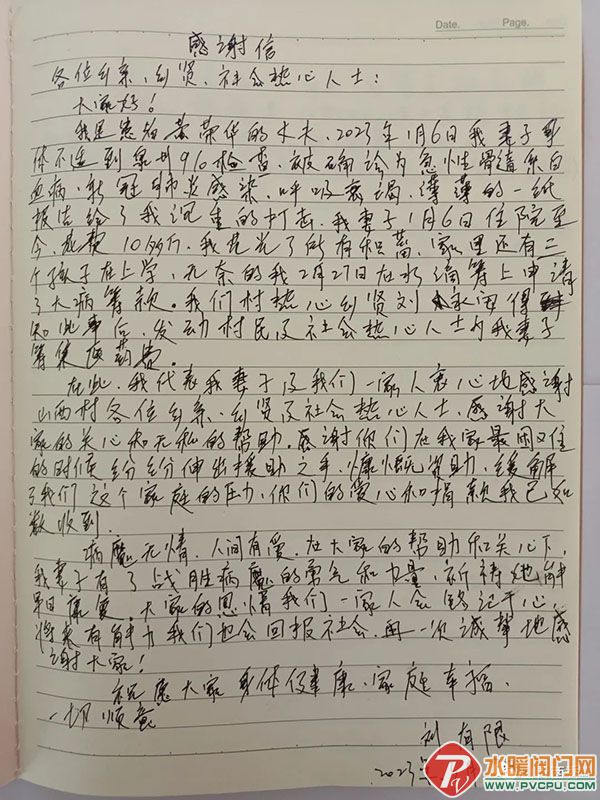 Date.    Page.
感谢信
各位乡亲、乡贤、社会热心人士：
大家好！
我是患者黄荣华的丈夫，2023年1月6日我妻子身
体不适到泉州910检查，被确诊为急性骨髓系白
血病，新冠肺炎感染，呼吸衰竭，薄薄的一纸
报告给了我沉重的打击，我妻子1月6日住院至
今，花费10多万，我花光了所有积蓄，家里还有二
个孩子在上学，无奈的我2月27日在水滴筹上申请
了大病筹款。我们村热心乡贤刘永得
知此事后，发动村民及社会热心人士为我妻子
筹集医药费。
在此，我代表我妻子及我们一家人衷心地感谢
山西村各位乡亲、乡贤及社会热心人士，感谢大
家的关心和无私的帮助。感谢你们在我家最困难
的时候纷纷伸出援助之手，慷慨资助，缓解
了我们这个家庭的压力，你们的爱心和捐款我已如
数收到。
病魔无情，人间有爱，在大家的帮助和关心下，
我妻子有了战胜病魔的勇气和力量，祈祷她能
早日康复。大家的恩情我们一家人会铭记于心，
将来有能力我们也会回报社会，再一次诚挚地感
谢大家！
祝愿大家身体健康、家庭幸福，
一切顺意
刘有限
2023年
水暖阀门网
WWW.PVCPU.COM